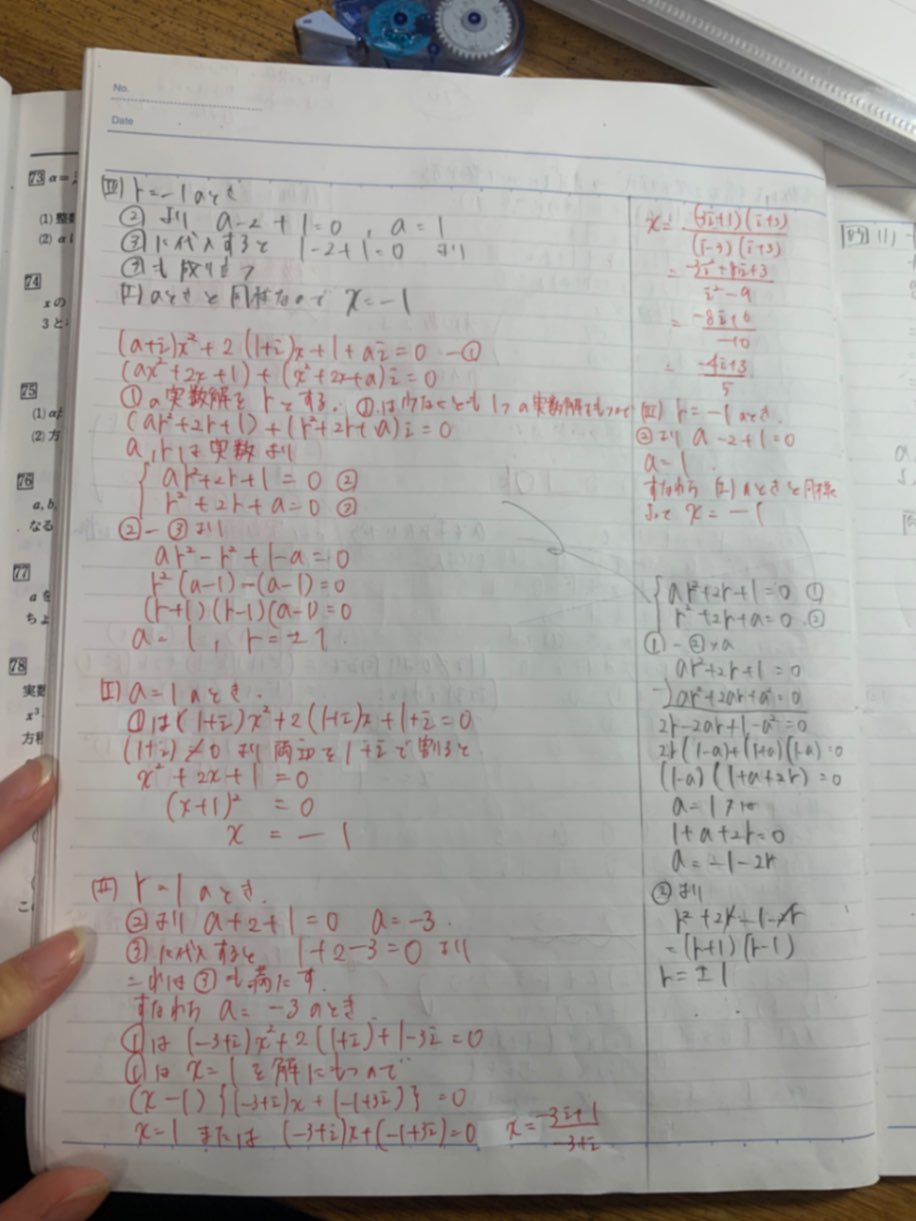 No.
Date
(Ⅲ) r=-1のとき
② より a-2+1=0 , a=1
③に代入すると 1-2+1=0 より
③も成り立つ
(Ⅰ)のときと同様なので x=-1
(a+i)x²+2(1+i)x+1+ai=0 -①
(ax²+2x+1)+(x²+2x+a)i=0
①の実数解をrとする. ①は少なくとも1つの実数解をもつので
(ar²+2r+1)+(r²+2r+a)i=0
a,rは実数より
ar²+2r+1=0 ②
r²+2r+a=0 ③
②-③より
ar²-r²+1-a=0
r²(a-1)-(a-1)=0
(r+1)(r-1)(a-1)=0
a=1, r=±1.
(Ⅰ) a=1のとき.
①は(1+i)x²+2(1+i)x+1+i=0
(1+i)≠0より両辺を1+iで割ると
x²+2x+1=0
(x+1)²=0
x=-1
(Ⅱ) r=1のとき.
②より a+2+1=0 a=-3.
③に代入すると 1+2-3=0 より
これは③も満たす.
すなわち a=-3のとき
①は (-3+i)x²+2(1+i)+1-3i=0
①は x=1を解にもつので
(x-1){(-3+i)x+(-1+3i)}=0
x=1 または (-3+i)x+(-1+3i)=0 x=\frac{-3i+1}{-3+i}
x=\frac{(-3i+1)(i+3)}{(i-3)(i+3)}
=\frac{-3i²-8i+3}{i²-9}
=\frac{-8i+6}{-10}
=\frac{-4i+3}{5}
(Ⅲ) r=-1のとき.
②より a-2+1=0
a=1.
すなわち (Ⅰ)のときと同様
よって x=-1
ar²+2r+1=0 ①
r²+2r+a=0 ②
①-②×a
ar²+2r+1=0
-)ar²+2ar+a²=0
2r-2ar+1-a²=0
2r(1-a)+(1+a)(1-a)=0
(1-a)(1+a+2r)=0
a=1 または
1+a+2r=0
a=-1-2r
②より
r²+2r-1-2r
=(r+1)(r-1)
r=±1
73 α=
(1) 整
74
xの
3と
75
(2) 方
76
a, b,
なる
77
aを
ちょ
78
実数
x³
方程